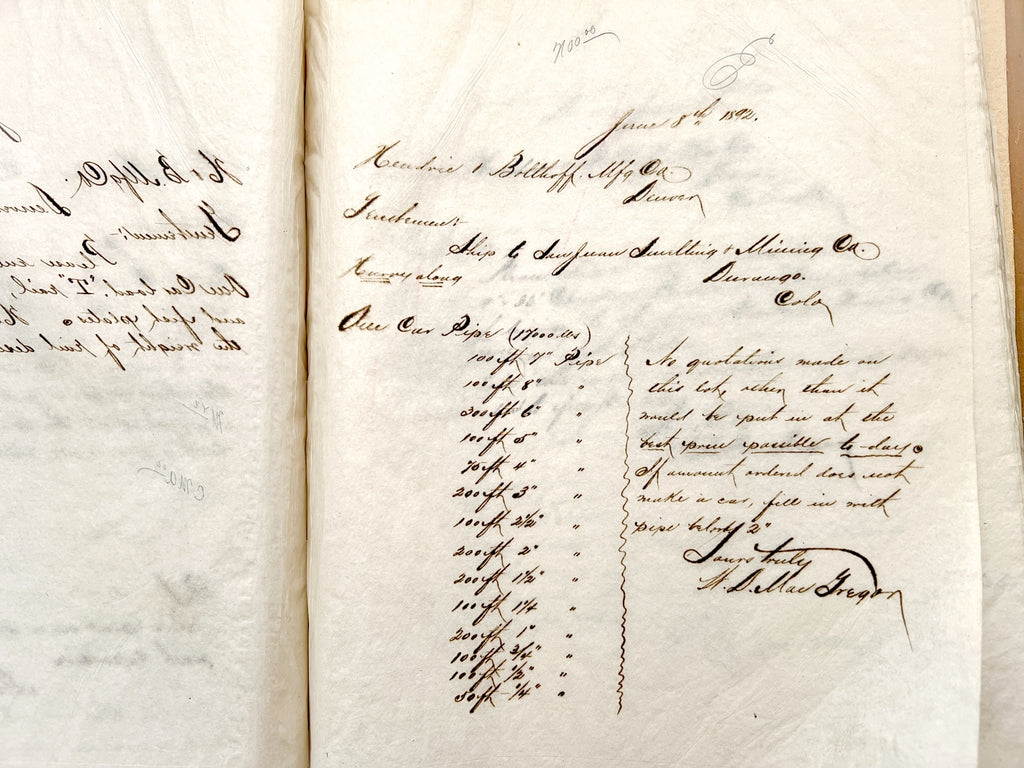 June 8th 1892.
Hendrie & Bolthoff Mfg Co.
Denver
Gentlemen:
Ship to San Juan Smelting & Mining Co.
Hurry along
Durango.
Colo
One Car Pipe (17000 lbs)
100 ft 7" Pipe
100 ft 8" "
300 ft 6" "
100 ft 5" "
75 ft 4" "
200 ft 3" "
100 ft 2 1/2" "
200 ft 2" "
200 ft 1 1/2" "
100 ft 1 1/4 "
200 ft 1" "
100 ft 3/4" "
100 ft 1/2" "
50 ft 1/4" "
No quotations made on
this lot, other than it
would be put in at the
best price possible to-day.
If amount ordered does not
make a car, fill in with
pipe below 2"
Yours truly
MacGregor
H & B. Mfg Co.
Gentlemen:-
Please
One Car load, "T" rail,
and fish plates.
the weight of rail